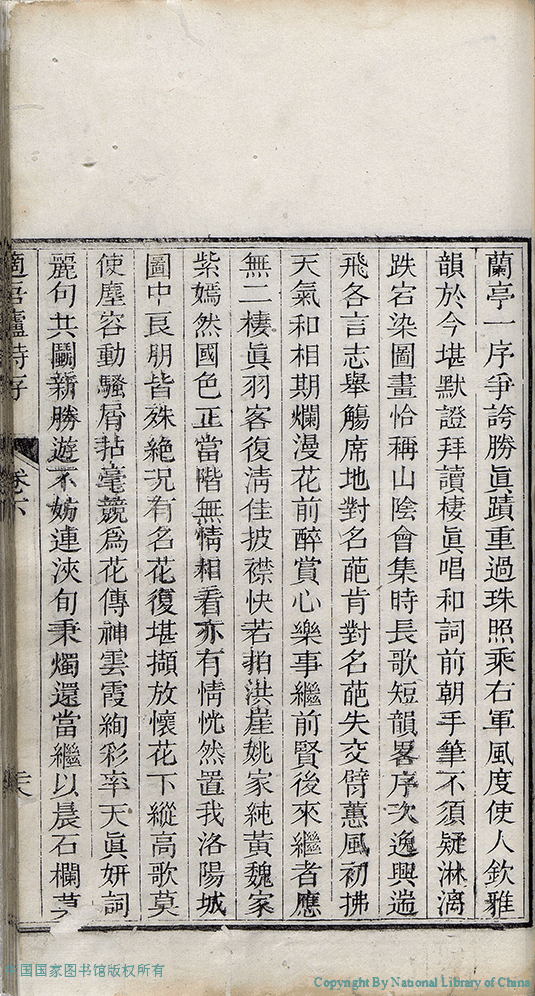 蘭亭一序爭誇勝眞蹟重過珠照乘右軍風度使人欽雅
韻於今堪默證拜讀棲眞唱和詞前朝手筆不須疑淋漓
跌宕染圖畫恰稱山陰會集時長歌短韻畧序次逸興遄
飛各言志舉觴席地對名葩肯對名葩失交臂蕙風初拂
天氣和相期爛漫花前醉賞心樂事繼前賢後來繼者應
無二棲眞羽客復淸佳披襟快若拍洪崖姚家純黃魏家
紫嫣然國色正當階無情相看亦有情恍然置我洛陽城
圖中良朋皆殊絶况有名花復堪擷放懷花下縱高歌莫
使塵容動騷屑拈毫競爲花傳神雲霞絢彩率天眞妍詞
麗句共鬭新勝遊不妨連浹旬秉燭還當繼以晨石欄
適吾廬詩存 卷六
中国国家图书馆版权所有
Copyright By National Library of China